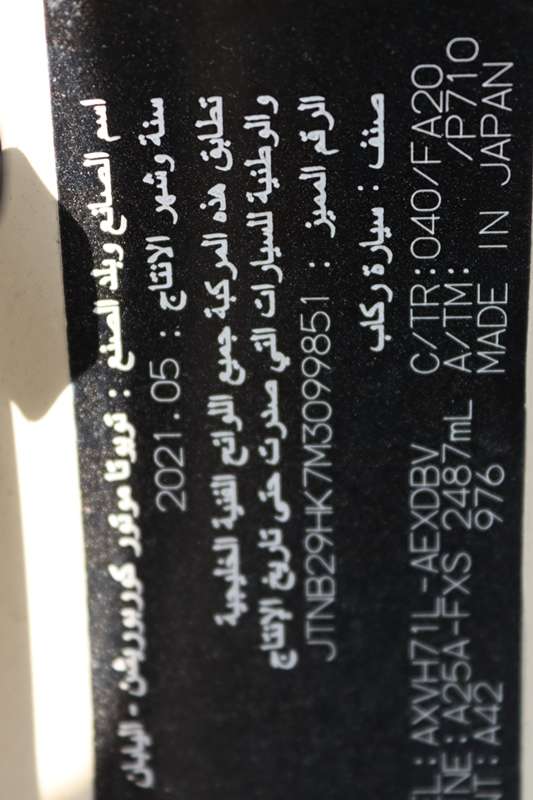 اسم الصانع وبلد الصنع : تويوتا موتور كوربوريشن - اليابان
سنة وشهر الانتاج : 2021.05
تطابق هذه المركبة جميع اللوائح الفنية الخليجية
والوطنية للسيارات التي صدرت حتى تاريخ الإنتاج
الرقم المميز : JTNB29HK7M3099851
صنف : سيارة ركاب
L: AXVH71L-AEXDBV C/TR:040/FA20
NE: A25A-FXS 2487mL A/TM: /P710
NT: A42 976 MADE IN JAPAN